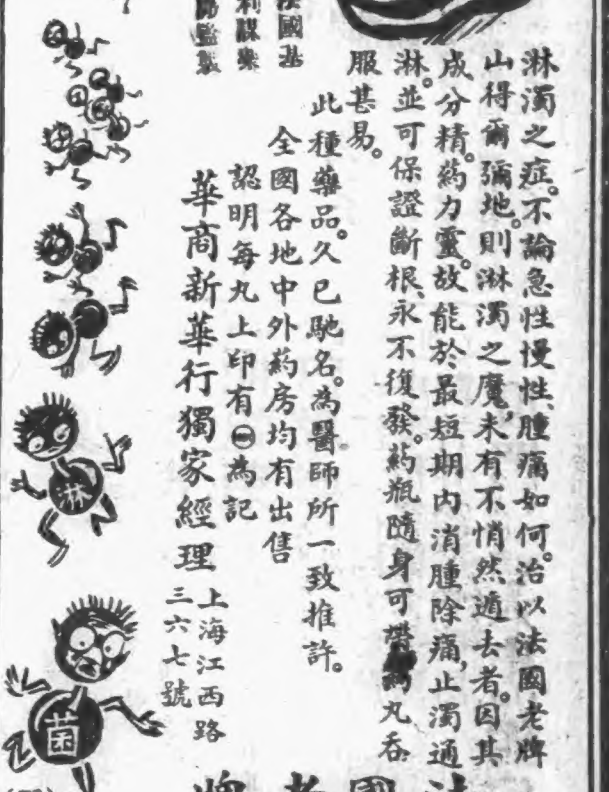 淋濁之症。不論急性慢性、腫痛如何。治以法國老牌
山得爾彌地。則淋濁之魔、未有不悄然遁去者。因其
成分精。葯力靈。故能於最短期内消腫除痛、止濁通
淋。並可保證斷根、永不復發。葯瓶隨身可攜葯丸吞
服甚易。
此種藥品。久已馳名。為醫師所一致推許。
全國各地中外葯房均有出售
認明每丸上印有㊀為記
華商新華行獨家經理
上海江西路
三六七號
法國
利
監製
淋
菌
法國老牌